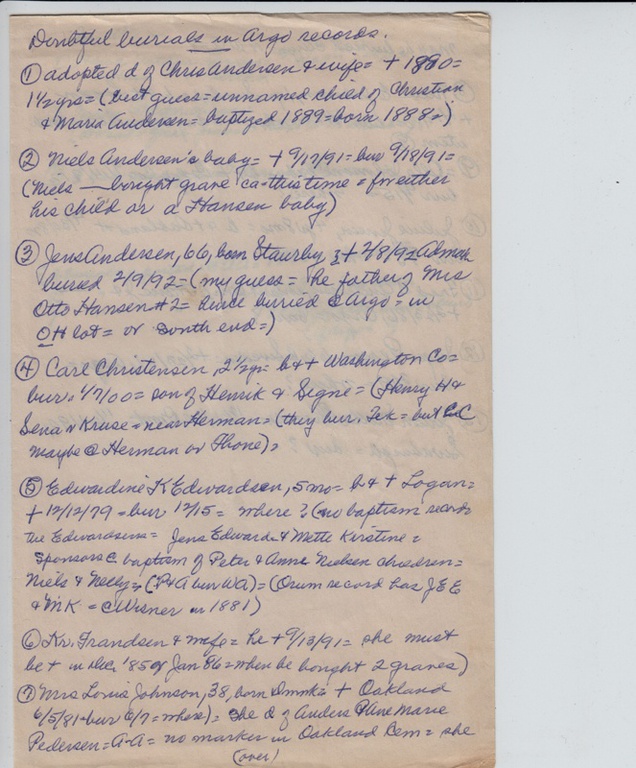 Doubtful burials in Argo records.
① adopted d of Chris Andersen & wife = + 1890 =
1½ yrs = (best guess = unnamed child of Christian
& Maria Andersen = baptized 1889 = born 1888
② Niels Andersen's baby = + 9/17/91 = bur 9/18/91 =
(Niels — bought grave ca this time = for either
his child or a Hansen baby)
③ Jens Andersen, 66, born Staurby, + 2/8/92 Admah
buried 2/9/92 = (my guess = he father of Mrs
Otto Hansen #2 = hence buried @ Argo = in
OH lot = or South end =)
④ Carl Christensen, 2½ yr = b & + Washington Co =
bur = 1/7/00 = son of Henrik & Signe = (Henry H &
Sena Kruse = near Herman = (they bur. Tek = but CC
maybe @ Herman or Fhone) =
⑤ Edwardine K Edwardsen, 5 mo = b & + Logan =
+ 12/12/79 = bur 12/15 = where? (no baptism record
the Edwardsens = Jens Edward & Mette Kirstine =
Sponsors @ baptism of Peter & Anne Nielsen children =
Niels & Nelly = (P & A bur WA) = (Orum record has JEE
& MK = C Wisner in 1881)
⑥ Kr. Frandsen & wife = he + 9/13/91 = she must
be + in Dec '85 or Jan 86 = when he bought 2 graves)
⑦ Mrs Louis Johnson, 38, born Dnmk = + Oakland
6/5/81 = bur 6/7 = where) = she d of Anders & Ane Marie
Pedersen = A-A = no marker in Oakland Cem = she
(over)